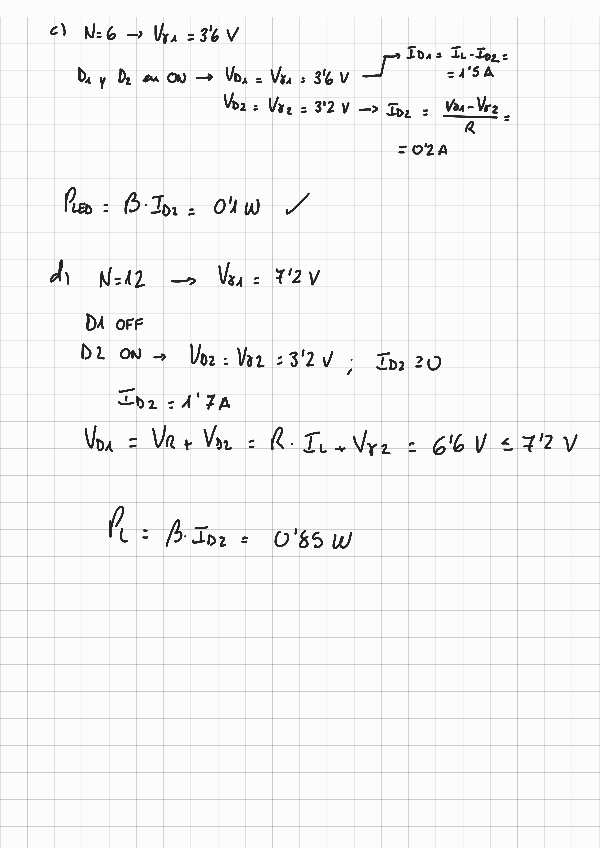 c) N=6 → Vγ1 = 3'6 V
D1 y D2 en ON → VD1 = Vγ1 = 3'6 V → ID1 = IL - ID2 =
= 1'5 A
VD2 = Vγ2 = 3'2 V → ID2 = (VD1 - Vγ2) / R =
= 0'2 A
PLED = β · ID2 = 0'1 W ✓
d) N=12 → Vγ1 = 7'2 V
D1 OFF
D2 ON → VD2 = Vγ2 = 3'2 V ; ID2 ≥ 0
ID2 = 1'7 A
VD1 = VR + VD2 = R · IL + Vγ2 = 6'6 V ≤ 7'2 V
PL = β · ID2 = 0'85 W